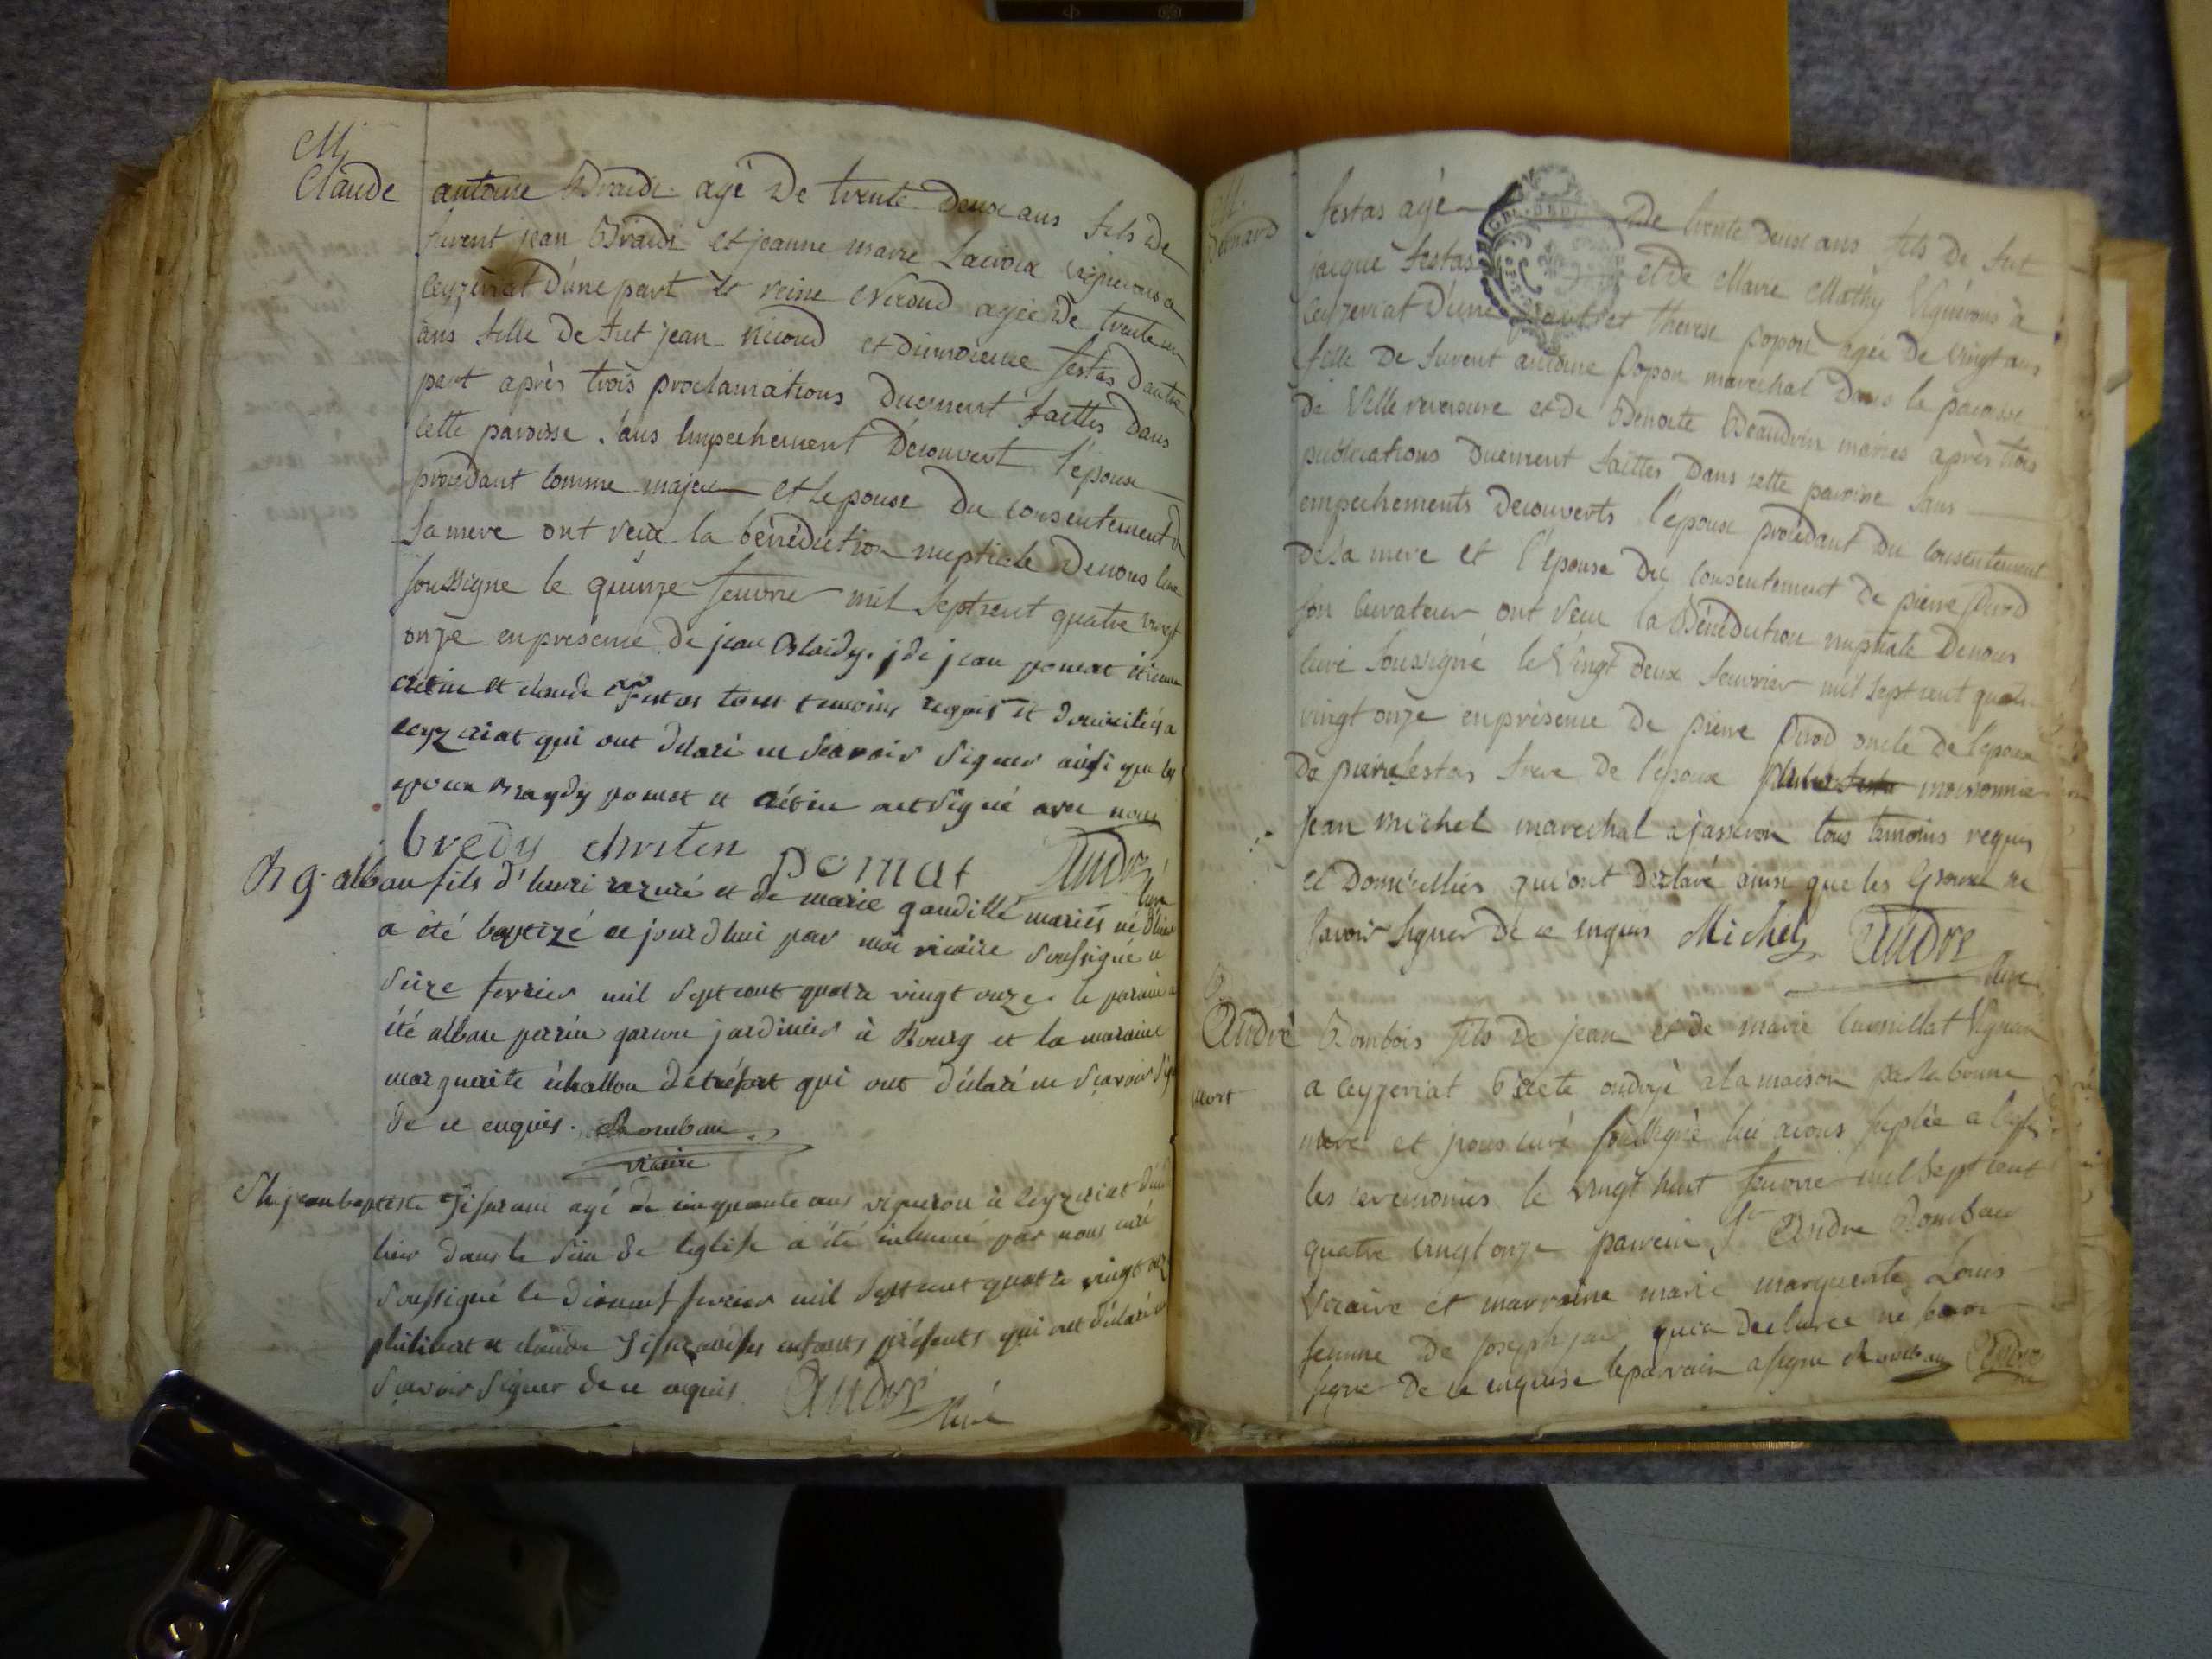 M
Claude antoine Braidi agé De trente Deux ans fils De
furent jean Braidi et jeanne marie Lacroix vignerons a
Ceyzeriat D'une part et reine Neroud agée De trente un
ans fille De fut jean Neroud et Dimoieme festas D'autre
part après trois proclamations Duement faittes Dans
Cette paroisse sans Empechement Découvert l'époux
procedant Comme majeur et l'epouse Du consentement De
sa mere ont reçu la bénédiction nuptiale De nous Curé
soussigné le quinze feuvrier mil sept cent quatre vingt
onze en présence de jean Braidy, de jean pomat
et claude Festas tous temoins requis et domiciliés a
ceyzeriat qui ont déclaré ne sçavoir signer ainsi que les
époux Braydy pomat et crétin ont signé avec nous
bredy chriten pomat André Curé
B 9. alban fils d'henri razuré et de marie gaudillé mariés né d'hier
a été baptizé ce jourd'hui par moi vicaire soussigné ce
seize fevrier mil sept cent quatre vingt onze. le parain a
été alban perrin garcon jardinier à Bourg et la maraine
marguerite échallon de tréfort qui ont déclaré ne sçavoir signer
de ce enquis. Rombau
vicaire
jean baptiste agé de cinquante ans vigneron à Ceyzeriat
hier dans le sein de l'eglise a été inhumé par nous curé
soussigné le dixneuf fevrier mil sept cent quatre vingt onze
philibert et claude ses enfants présents qui ont déclaré ne
sçavoir signer de ce enquis. André
Curé
M.
Bernard festas agé De trente Deux ans fils De fut
jacque festas et De Marie Mathy Vignerons à
Ceyzeriat D'une part et therese popon agée De vingt ans
fille De furent antoine popon marechal Dans le paroisse
De Villereversure et De Benoite Beaudrin mariés après trois
publications Duement faittes Dans cette paroisse sans
empechements Decouverts l'epoux procedant Du Consentement
De sa mere et l'épouse Du Consentement De pierre Purod
son Curateur ont reçu la Bénédiction nuptiale De nous
Curé soussigné le Vingt Deux feuvrier mil sept cent quatre
vingt onze en présence De pierre Purod oncle De l'epouse
De pierre festas frere De l'époux moissonnier
Jean Michel marechal a jasseron tous temoins requis
et Domicilliés qui ont Déclaré ainsi que les Epoux ne
savoir signer De ce enquis Michel André
Curé
B
André Bombois fils De jean et De marie Cursillat Vigneron
mort
a Ceyzeriat a été ondoyé a la maison par la bonne
mere et nous curé soussigné lui avons suplée a l'eglise
les ceremonies le vingt huit feuvrier mil sept cent
quatre vingt onze parrein Sr André Rombau
Vicaire et marraine marie marguerite Louis
femme De joseph qui a Declarée ne savoir
signer De ce enquise le parrain a signé Rombau André